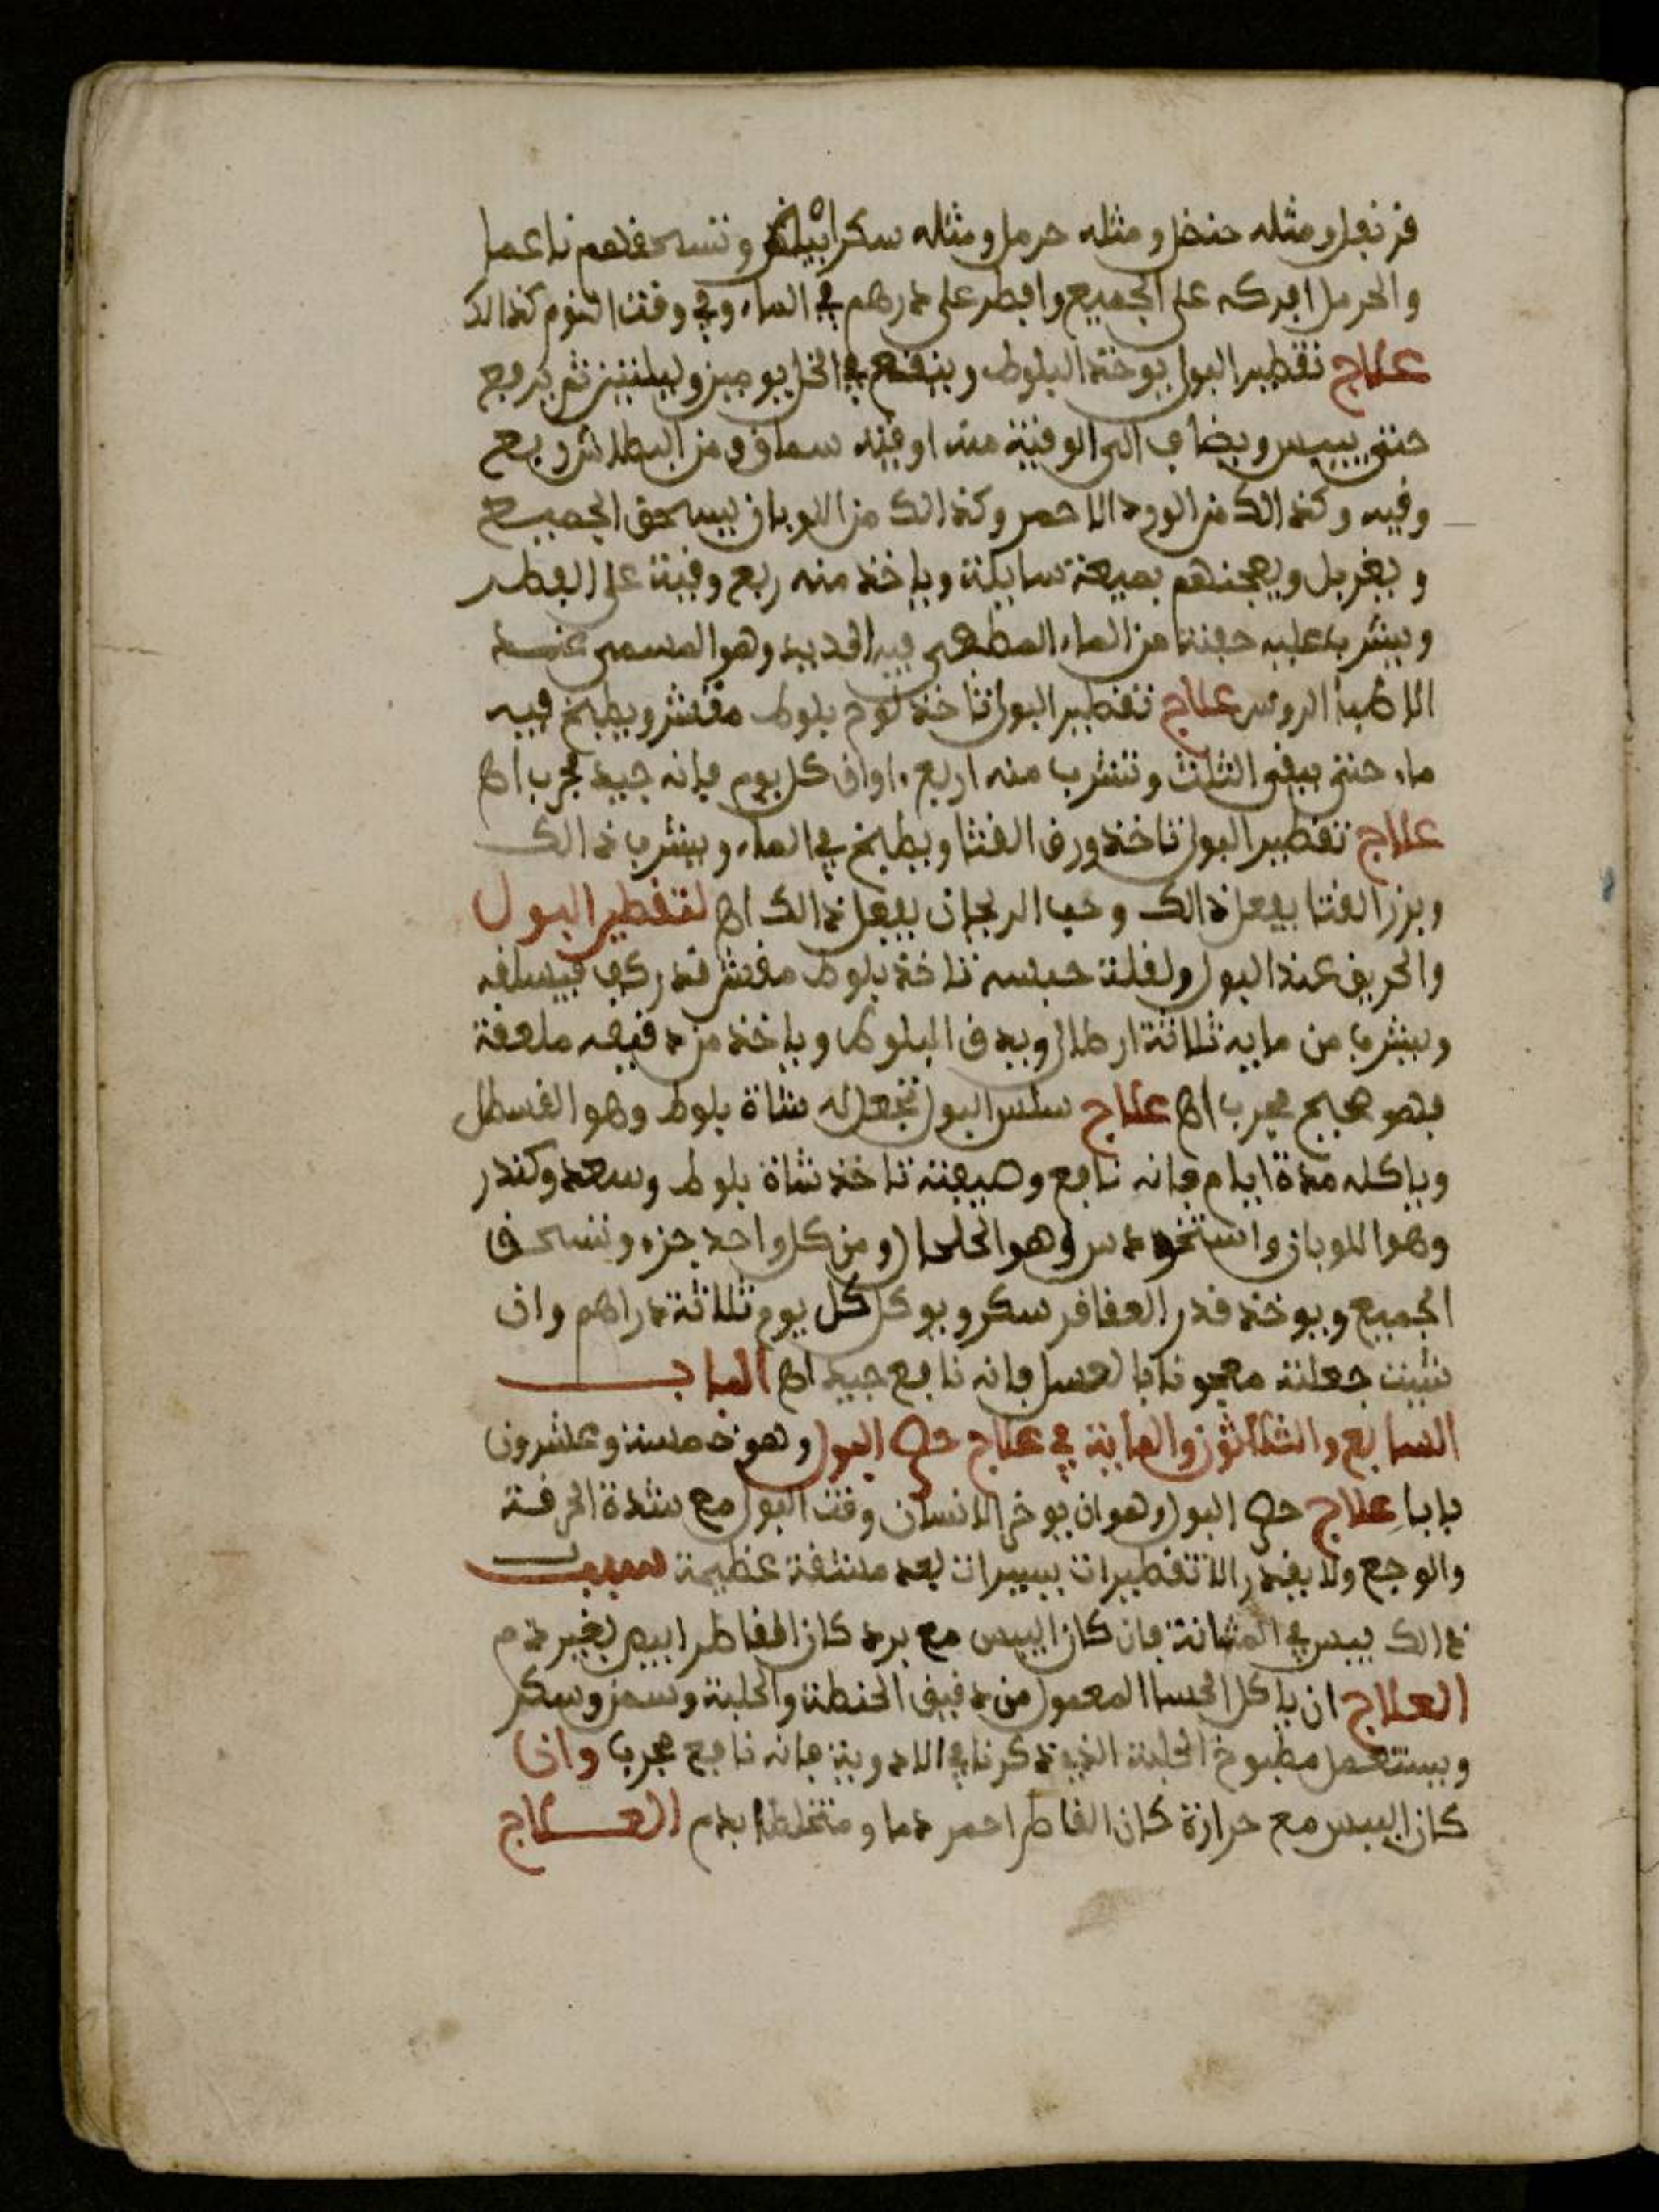 قرنفل ومثله حنضل ومثله حرمل ومثله سكر ابيض وتسحقهم ناعما
والحرمل افركه على الجميع وافطر على درهم في الماء وفي وقت النوم كذالك
علاج تقطير البول يوخذ البلوط وينقع في الخل يومين وليلتين ثم يرفع
حتى ييبس ويضاف الى الوقية منه اوقيه سماق و من البطلاش ربع
وقيه وكذالك من الورد الاحمر وكذالك من اللوبان يسحق الجميع
ويغربل ويعجنهم بميعة سايلة وياخذ منه ربع وقية على الفطر
ويشرب عليه حفنة من الماء المطفي فيه الحديد وهو المسمى عند
الاطبا الروس علاج تقطير البول تاخذ لوم بلوط مقشر ويطبخ فيه
ماء حتى يبقى الثلث وتشرب منه اربع اواق كل يوم فإنه جيد مجرب اه
علاج تقطير البول تاخذ ورق القثا ويطبخ في الماء ويشرب ذالك
وبزر القثا يفعل ذالك وحب الريحان يفعل ذالك اه لتقطير البول
والحريق عند البول ولقلة حبسه تاخذ بلوط مقشر قدر كف يسلقه
ويشرب من مايه ثلاثة ارطال ويدق البلوط وياخذ من دقيقه ملعقة
فهو صحيح مجرب اه علاج سلس البول تجعل له شاة بلوط وهو القسطل
وياكله مدة ايام فانه نافع وصيفته تاخذ شاة بلوط وسعد وكندر
وهو اللوبان و وهو الحلحال ومن كل واحد جزء وتسحق
الجميع ويوخذ قدر العقاقر سكر ويوكل كل يوم ثلاثة دراهم وان
شيت جعلته معجونا بالعسل فانه نافع جيد اه الباب
السابع والثلاثون والماية في علاج حصر البول وهو خمسة وعشرون
بابا علاج حصر البول وهو ان يوخر الانسان وقت البول مع شدة الحرقة
والوجع ولا يقدر الا تقطيرات يسيرات بعد مشقة عظيمة سبب
ذالك يبس في المثانة فان كان اليبس مع برد كان القاطر ابيض بغير دم
العلاج ان ياكل الحسا المعمول من دقيق الحنطة والحلبة وسمن وسكر
ويستعمل مطبوخ الحلبة الذي ذكرنا في الادوية فانه نافع مجرب وان
كان اليبس مع حرارة كان القاطر احمر دما ومتخلطا بدم العلاج